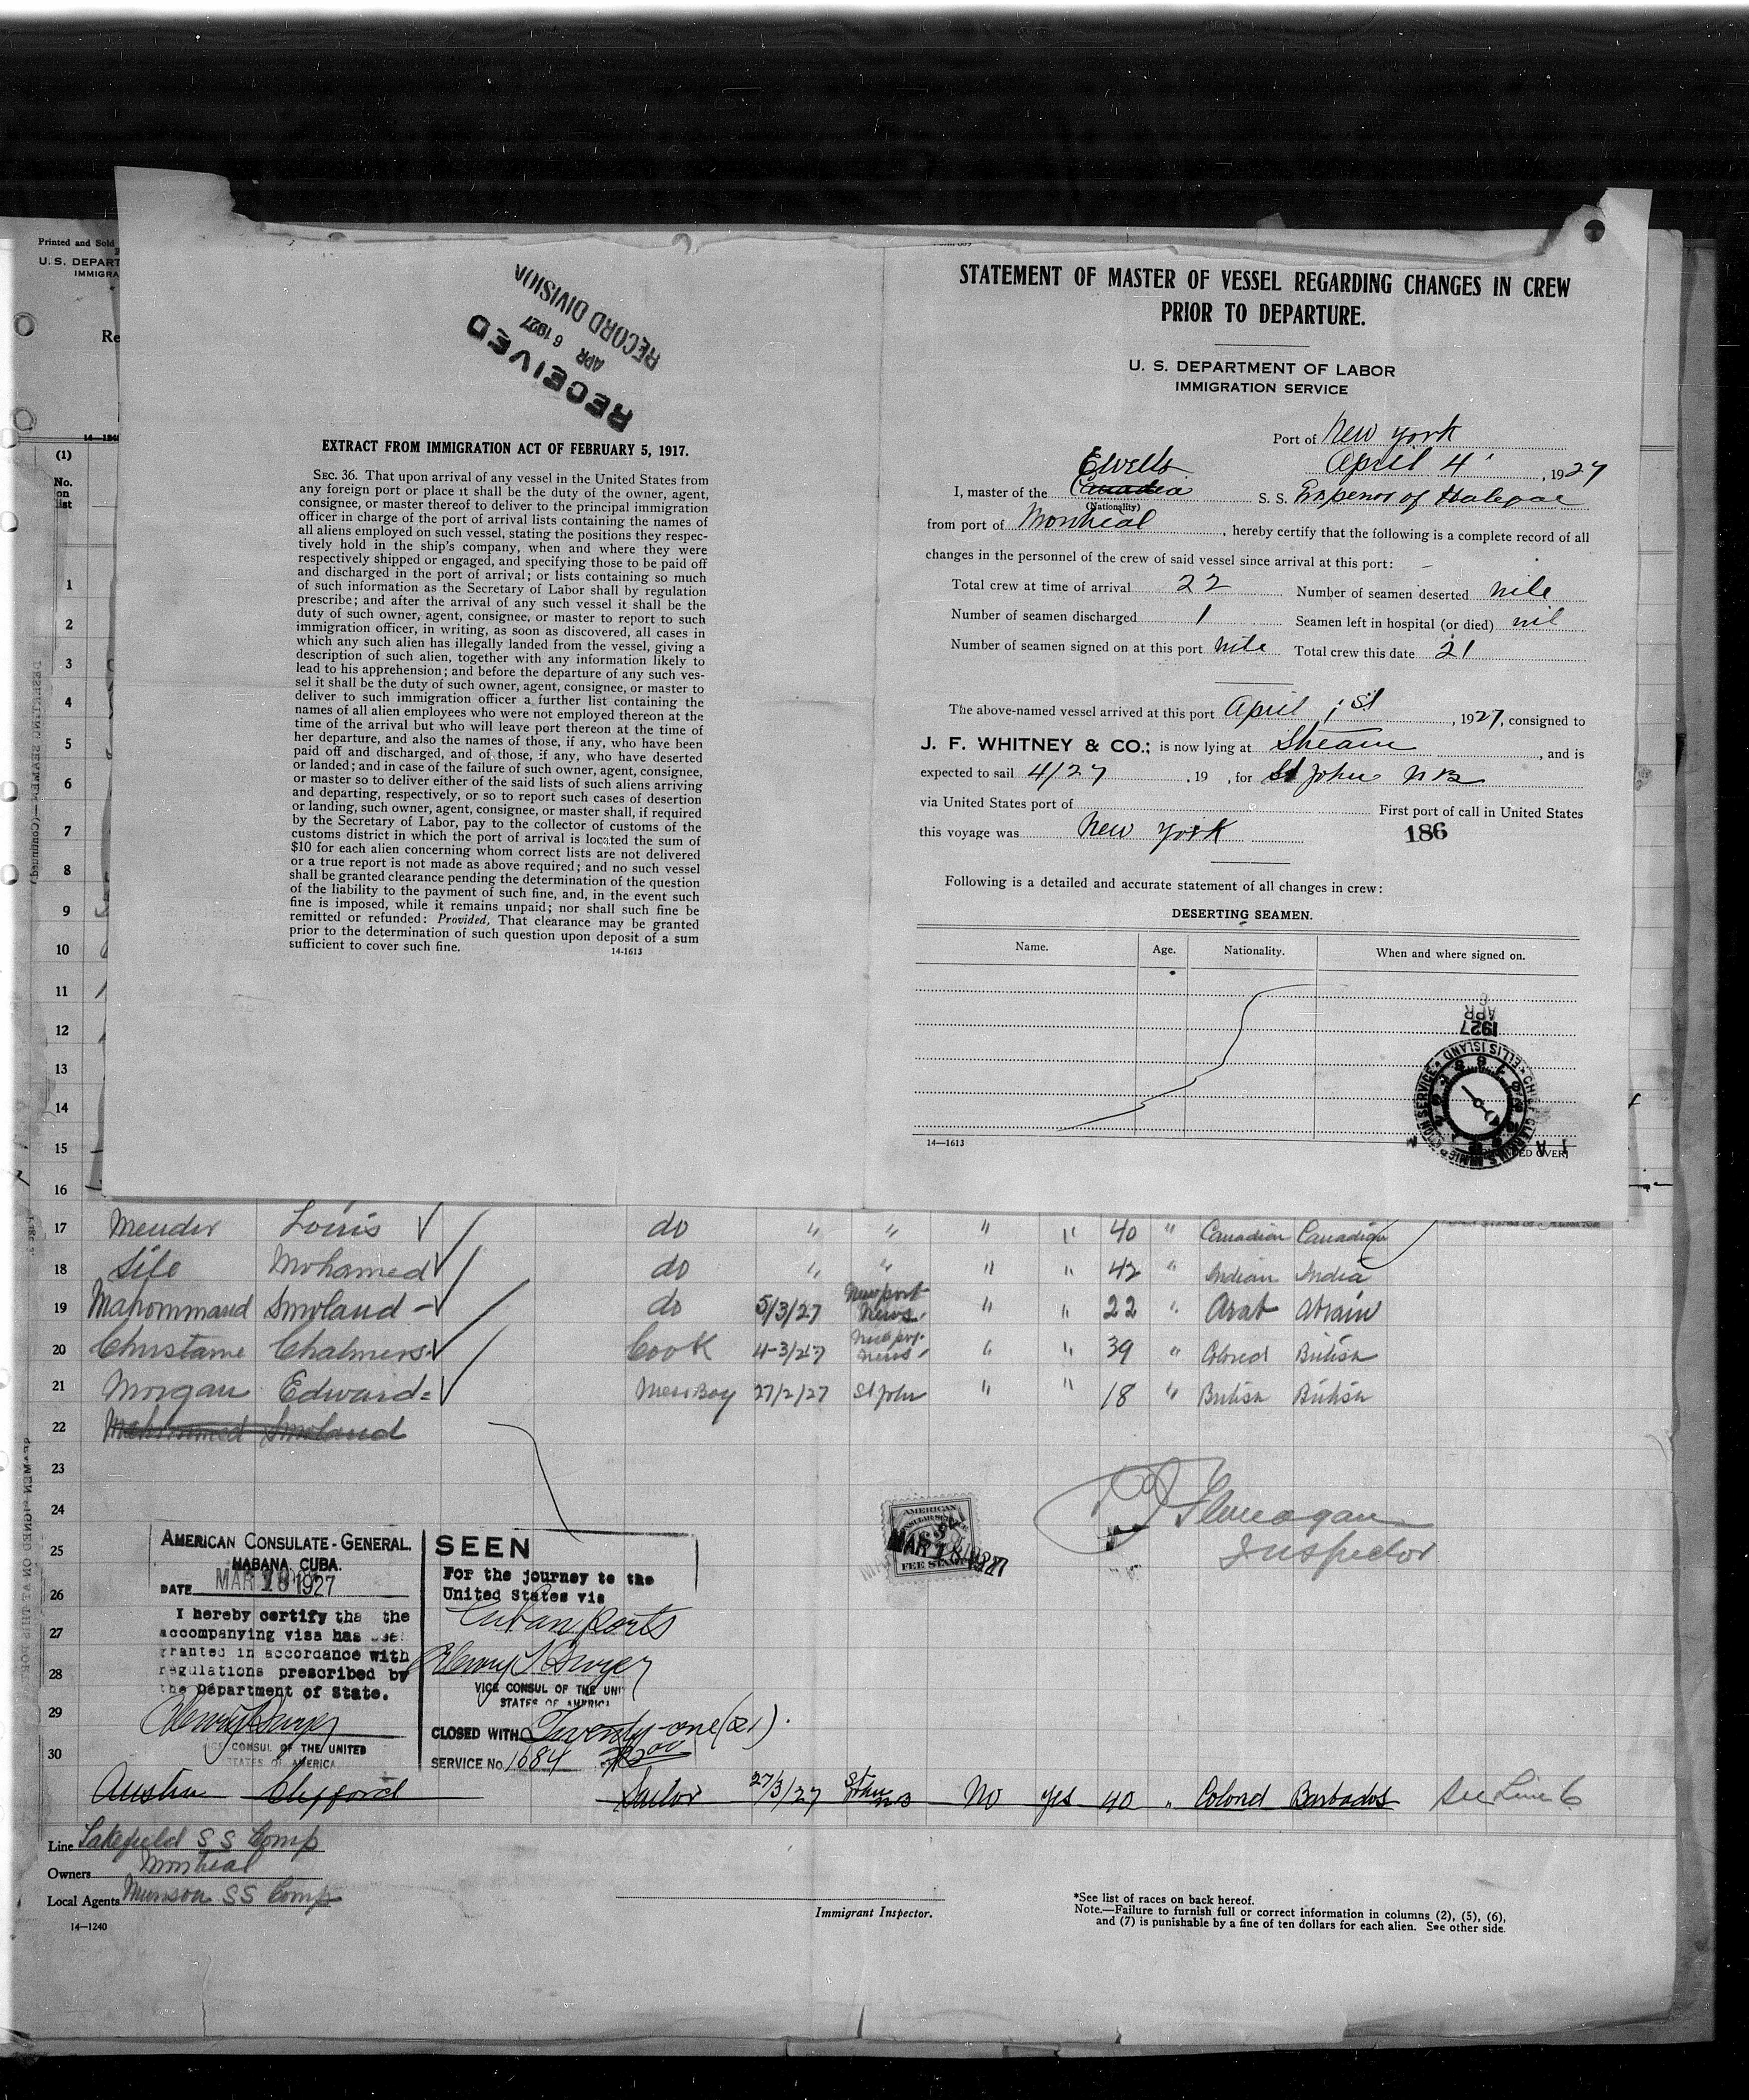 Printed and Sold
U. S. DEPART
IMMIGRA
Re
14—1240
(1)
No.
on
list
1
2
3
4
5
6
7
8
9
10
11
12
13
14
15
16
RECEIVED
APR 6 1927
RECORD DIVISION
EXTRACT FROM IMMIGRATION ACT OF FEBRUARY 5, 1917.
SEC. 36. That upon arrival of any vessel in the United States from
any foreign port or place it shall be the duty of the owner, agent,
consignee, or master thereof to deliver to the principal immigration
officer in charge of the port of arrival lists containing the names of
all aliens employed on such vessel, stating the positions they respec-
tively hold in the ship's company, when and where they were
respectively shipped or engaged, and specifying those to be paid off
and discharged in the port of arrival; or lists containing so much
of such information as the Secretary of Labor shall by regulation
prescribe; and after the arrival of any such vessel it shall be the
duty of such owner, agent, consignee, or master to report to such
immigration officer, in writing, as soon as discovered, all cases in
which any such alien has illegally landed from the vessel, giving a
description of such alien, together with any information likely to
lead to his apprehension; and before the departure of any such ves-
sel it shall be the duty of such owner, agent, consignee, or master to
deliver to such immigration officer a further list containing the
names of all alien employees who were not employed thereon at the
time of the arrival but who will leave port thereon at the time of
her departure, and also the names of those, if any, who have been
paid off and discharged, and of those, if any, who have deserted
or landed; and in case of the failure of such owner, agent, consignee,
or master so to deliver either of the said lists of such aliens arriving
and departing, respectively, or so to report such cases of desertion
or landing, such owner, agent, consignee, or master shall, if required
by the Secretary of Labor, pay to the collector of customs of the
customs district in which the port of arrival is located the sum of
$10 for each alien concerning whom correct lists are not delivered
or a true report is not made as above required; and no such vessel
shall be granted clearance pending the determination of the question
of the liability to the payment of such fine, and, in the event such
fine is imposed, while it remains unpaid; nor shall such fine be
remitted or refunded: Provided, That clearance may be granted
prior to the determination of such question upon deposit of a sum
sufficient to cover such fine.
14-1613
STATEMENT OF MASTER OF VESSEL REGARDING CHANGES IN CREW
PRIOR TO DEPARTURE.
U. S. DEPARTMENT OF LABOR
IMMIGRATION SERVICE
Port of New York
April 4, 1927
Elvells
I, master of the Canadia S. S. of
(Nationality)
from port of Montreal, hereby certify that the following is a complete record of all
changes in the personnel of the crew of said vessel since arrival at this port:
Total crew at time of arrival 22 Number of seamen deserted nile
Number of seamen discharged 1 Seamen left in hospital (or died) nil
Number of seamen signed on at this port nile Total crew this date 21
The above-named vessel arrived at this port April 1st, 1927, consigned to
J. F. WHITNEY & CO.; is now lying at Stream, and is
expected to sail 4/27, 19 , for St John N B
via United States port of First port of call in United States
this voyage was New York 186
Following is a detailed and accurate statement of all changes in crew:
DESERTING SEAMEN.
Name. Age. Nationality. When and where signed on.
6
APR
1927
14—1613
ED OVER]
17 Mender Louis do " " " " 40 " Canadian Canadian
18 Sile Mohamed do " " " " 42 " Indian India
19 Mahommand Smoland do 5/3/27 Newport News " " 22 " Arab
20 Christame Chalmers Cook 4-3/27 Newport News " " 39 " Colored British
21 Morgan Edward Mess Boy 27/2/27 St John " " 18 " British British
22 Mahommed Smoland
23
24
25
26
27
28
29
30
Flanagan
Inspector
AMERICAN
FEE STAMP
MAR 18 1927
AMERICAN CONSULATE-GENERAL.
HABANA, CUBA.
DATE MAR 18 1927
I hereby certify tha the
accompanying visa has
granted in accordance with
regulations prescribed by
the Department of State.
CONSUL OF THE UNITED
STATES OF AMERICA
SEEN
For the journey to the
United States via
Cuban Ports
Henry T. Dwyer
VICE CONSUL OF THE UNI
STATES OF AMERICA
CLOSED WITH Twenty-one (21).
SERVICE No. 1684
Austin Clifford Sailor 27/3/27 St John NB No yes 40 " Colored Barbados See Line 6
Line Lakefield S S Comp
Owners Montreal
Local Agents Munson SS Comp
14—1240
Immigrant Inspector.
*See list of races on back hereof.
Note.—Failure to furnish full or correct information in columns (2), (5), (6),
and (7) is punishable by a fine of ten dollars for each alien. See other side.